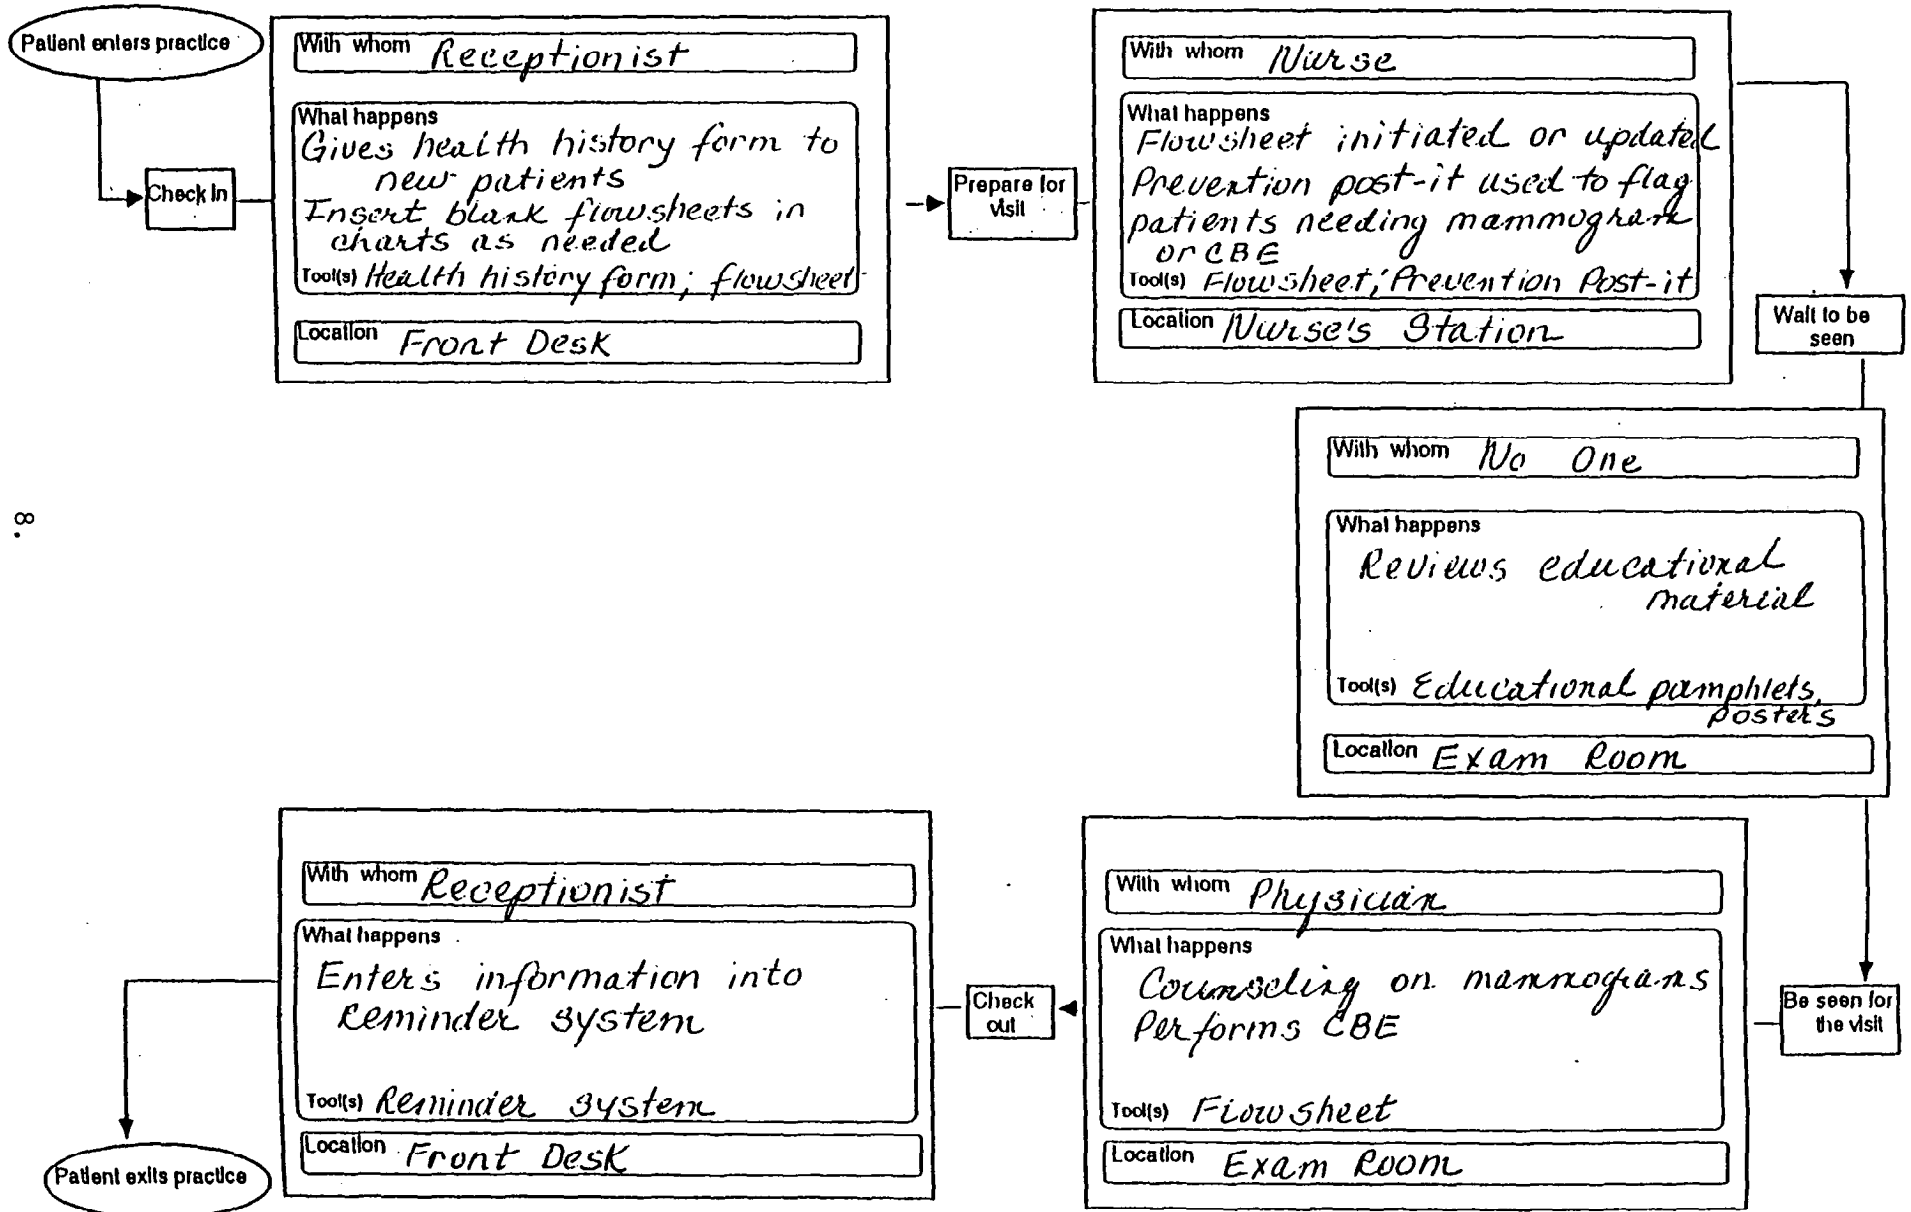 Patient enters practice
Check In
With whom Receptionist
What happens
Gives health history form to
new patients
Insert blank flowsheets in
charts as needed
Tool(s) Health history form; flowsheet
Location Front Desk
Prepare for
visit
With whom Nurse
What happens
Flowsheet initiated or updated
Prevention post-it used to flag
patients needing mammogram
or CBE
Tool(s) Flowsheet; Prevention Post-it
Location Nurse's Station
Wait to be
seen
With whom No One
What happens
Reviews educational
material
Tool(s) Educational pamphlets,
posters
Location Exam Room
8.
Be seen for
the visit
With whom Physician
What happens
Counseling on mammograms
Performs CBE
Tool(s) Flowsheet
Location Exam Room
Check
out
With whom Receptionist
What happens
Enters information into
Reminder system
Tool(s) Reminder system
Location Front Desk
Patient exits practice